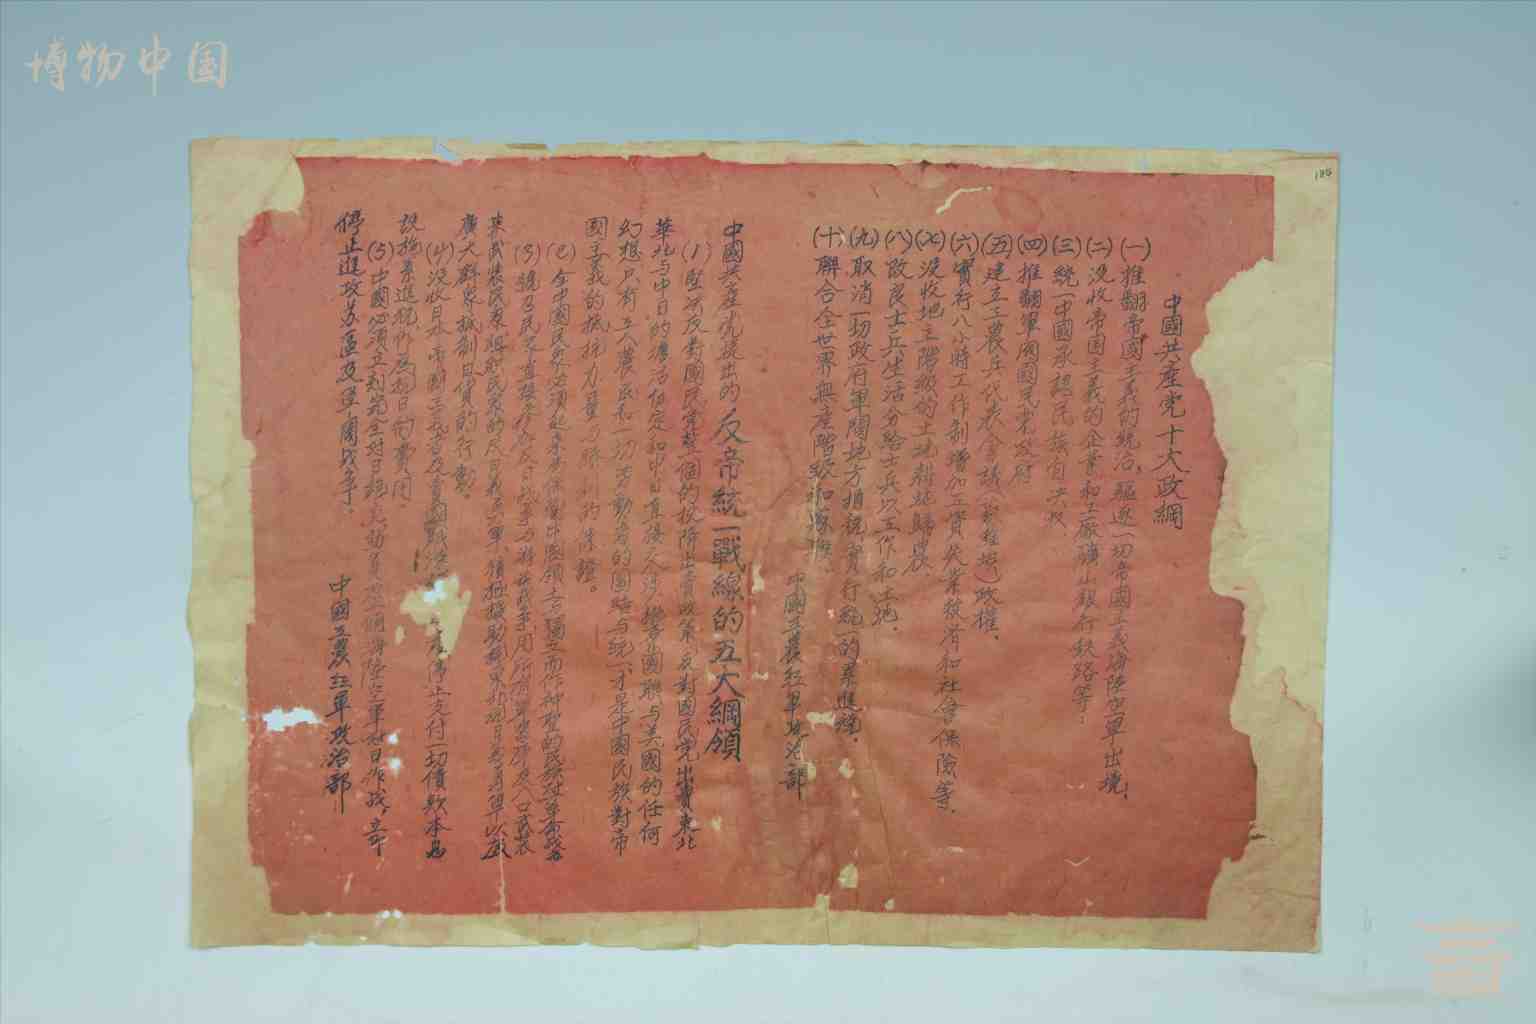 博物中国
186
中國共產党十大政綱
(一)推翻帝國主義的統治，驅逐一切帝國主義海陸空軍出境！
(二)沒收帝国主義的企業和工廠礦山銀行鉄路等：
(三)統一中國承認民族自决权
(四)推翻軍阀國民党政府
(五)建立工農兵代表會議(蘇維埃)政權、
(六)實行八小時工作制增加工資失業救濟和社會保險等．
(七)沒收地主階級的土地耕地歸農
(八)改良士兵生活分給士兵以工作和土地．
(九)取消一切政府軍閥地方捐税實行統一的累進税．
(十)聯合全世界無產階級和蘇聯．
中國工農紅軍政治部
中國共產党提出的反帝統一戰線的五大綱領
(1)堅决反對國民党整個的投降出賣政策反對國民党出賣東北
華北与中日的 和中日直接交涉 國聯与美國的任何
幻想只有工人農民和一切劳動者的團結与統一才是中國民族對帝
國主義的抵抗力量与勝利的保證。
(2)全中國民眾必須起來為保衛中國領土 獨立而作神聖的民族 革命战争
(3)號召民眾直接参加反日战争与游擊战争用所有軍器 武装
來武装民眾組織民眾的反日義勇軍，積極援助東北 義勇軍以及
廣大群眾抵制日貨的行動。
(4)沒收日本帝國主義 及賣國賊 停止支付一切債款本息
設施累進税作為抗日的費用．
(5)中國必須立刻完全对日絕交動員 海陸空軍对日作战，立即
停止進攻苏區及軍閥战争．
中國工農紅軍政治部